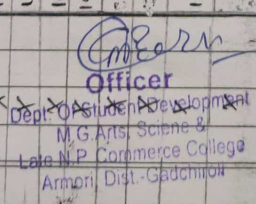 Officer
Dept. Of Student Development
M.G.Arts, Sciene &
Late N.P. Commerce College
Armori, Dist.-Gadchiroli